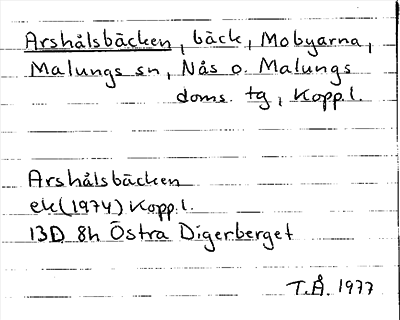 Arshålsbäcken, bäck, Mobyarna,
Malungs sn, Nås o. Malungs
doms. tg, Kopp.l.
Arshålsbäcken
ek(1974) Kopp.l.
13D 8h Östra Digerberget
T.Å. 1977